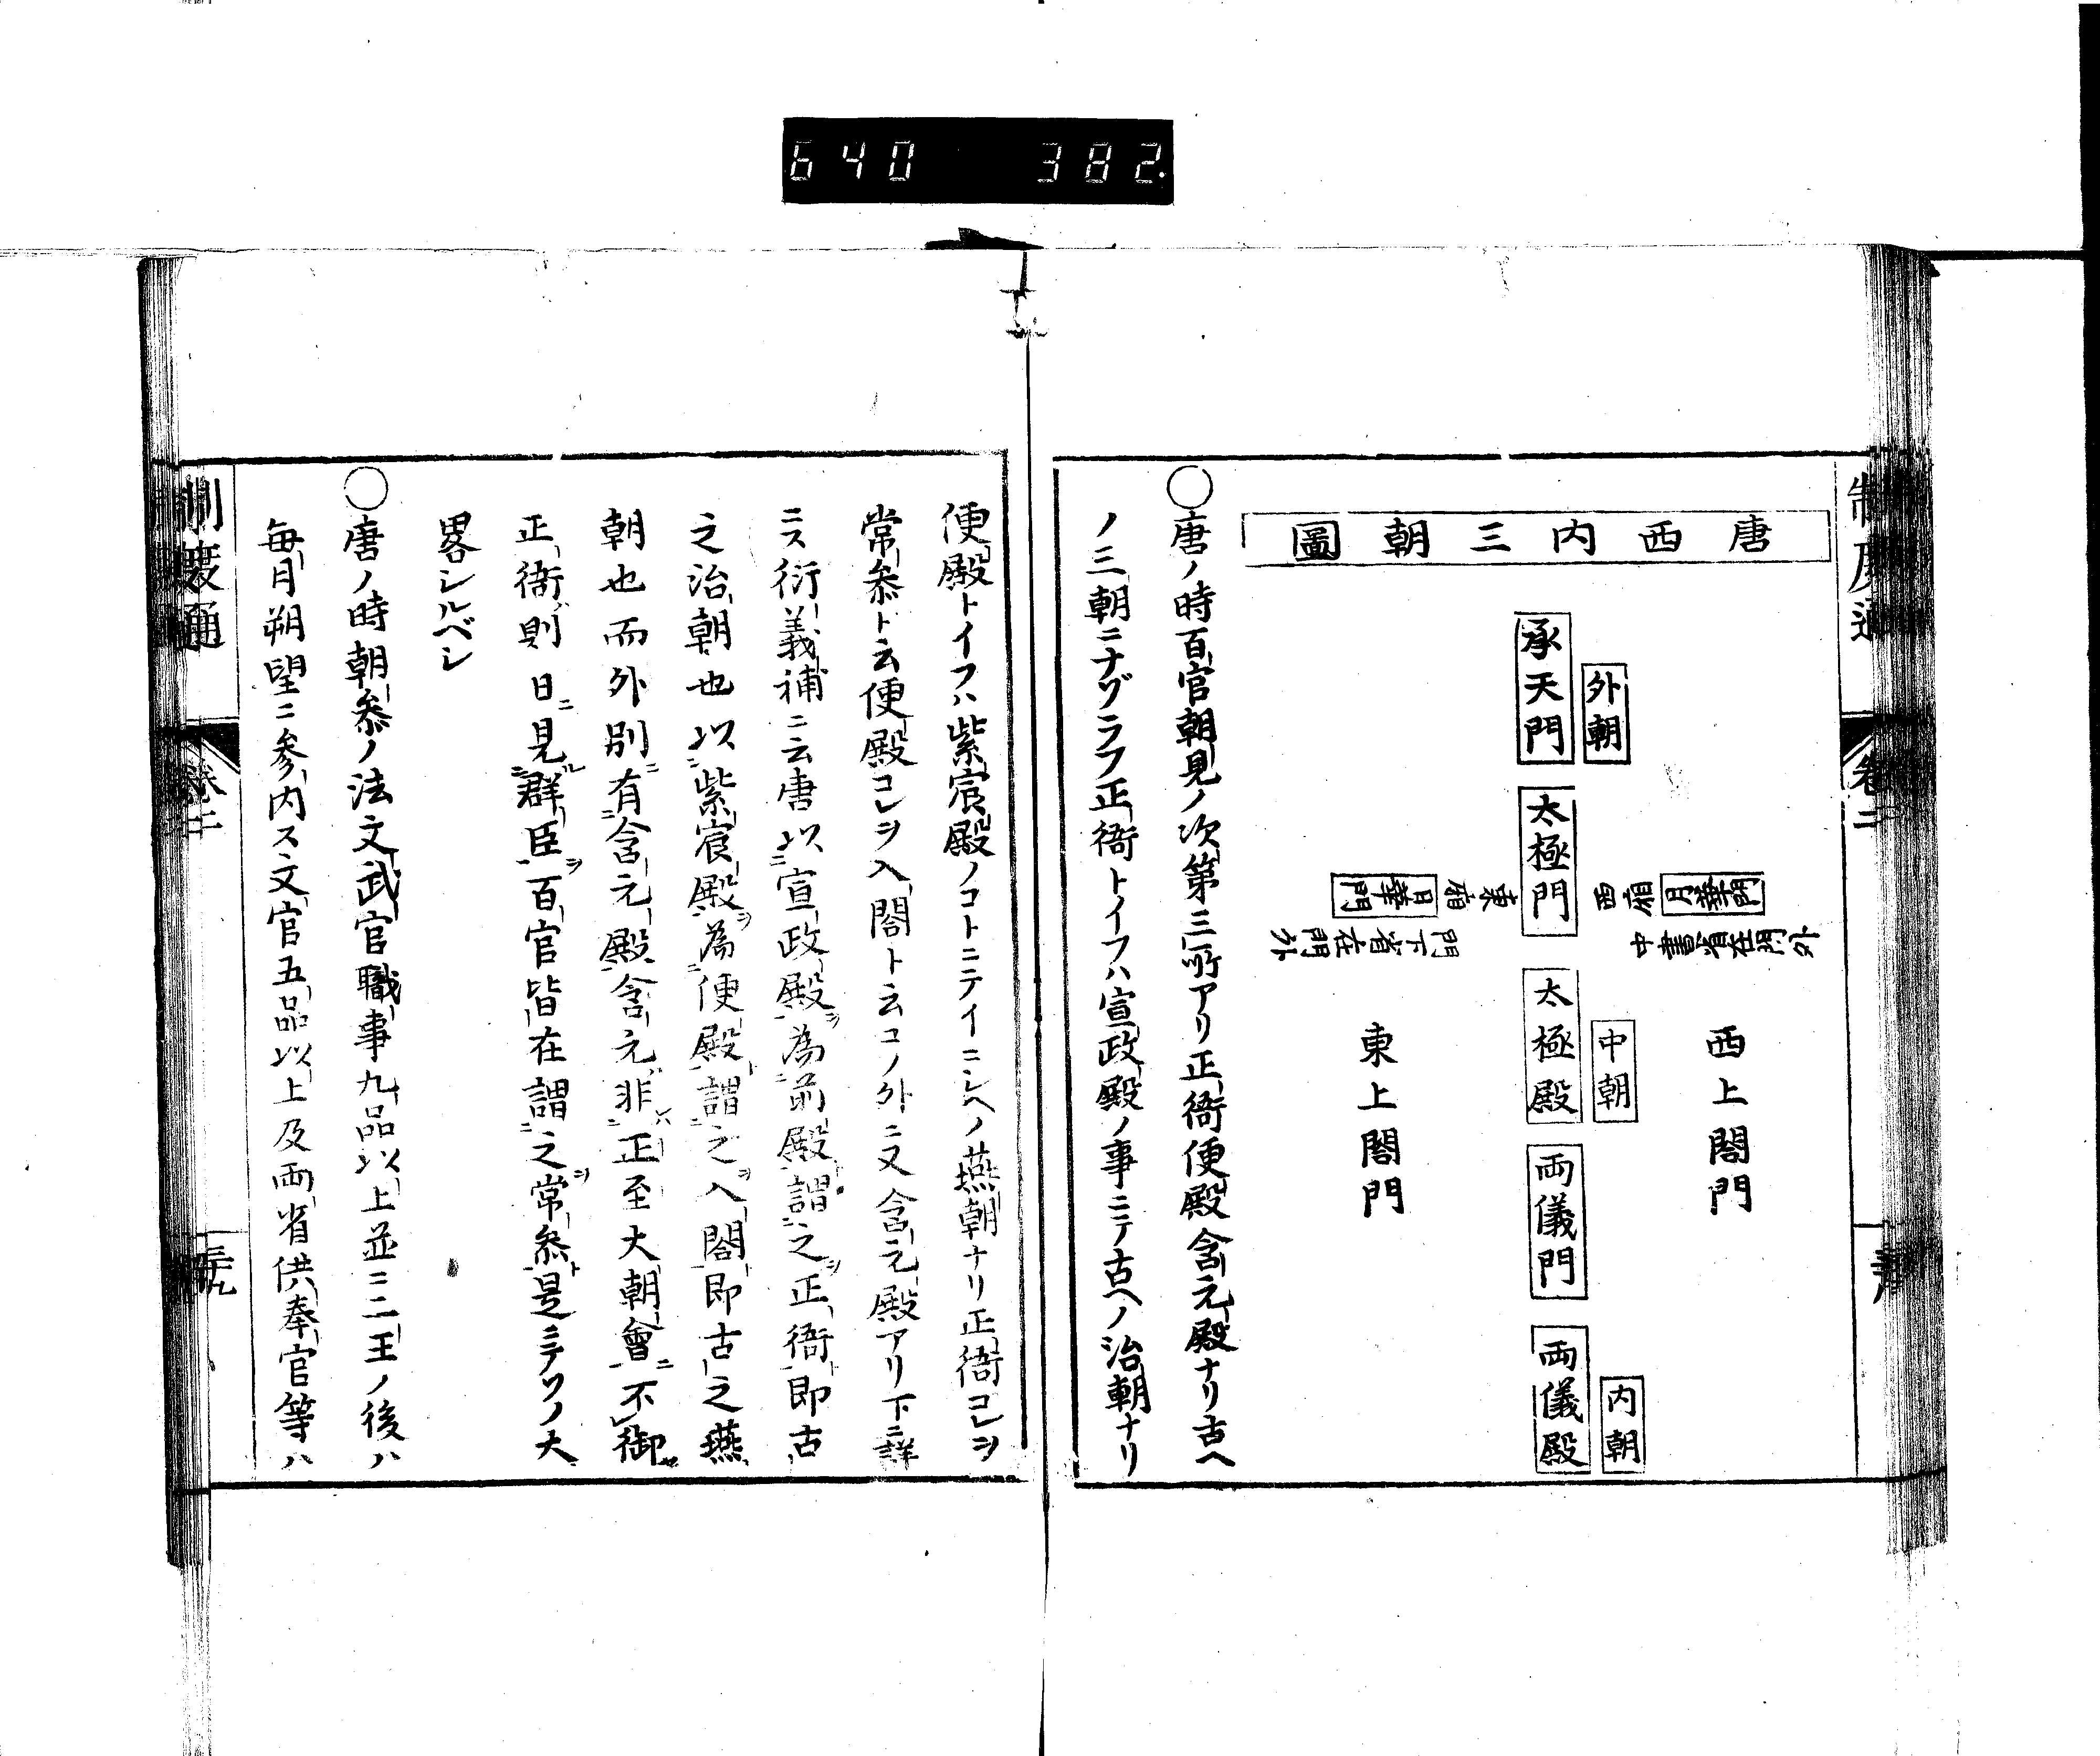 640 382
制度通
卷二
唐西內三朝圖
外朝
承天門
太極門
月華門
西廂
中書省在門外
東廂
日華門
門下省在門外
中朝
太極殿
西上閣門
東上閣門
両儀門
内朝
両儀殿
〇唐ノ時百官朝見ノ次第三所アリ正衙便殿含元殿ナリ古ヘ
ノ三朝ニナゾラフ正衙トイフハ宣政殿ノ事ニテ古ヘノ治朝ナリ
便殿トイフハ紫宸殿ノコトニテイニシヘノ燕朝ナリ正衙コレヲ
常叅ト云便殿コレヲ入閤ト云コノ外ニ又含元殿アリ下ニ詳
ニス衍義補ニ云唐以宣政殿為前殿謂之正衙即古
之治朝也以紫宸殿為便殿謂之入閤即古之燕
朝也而外別有含元殿含元非正至大朝會不御
正衙則日見群臣百官皆在謂之常叅是ニテソノ大
畧シルベシ
〇唐ノ時朝叅ノ法文武官職事九品以上並ニ二王ノ後ハ
毎月朔望ニ参内ス文官五品以上及両省供奉官等ハ
制度通
卷二
三十九